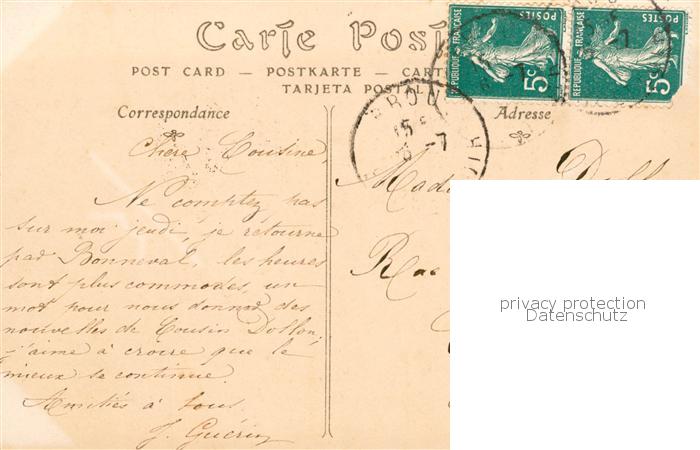 Carte Post
POST CARD — POSTKARTE — CART
TARJETA POSTAL
RÉPUBLIQUE FRANÇAISE POSTES 5c
RÉPUBLIQUE FRANÇAISE POSTES 5c
BROU
Correspondance
Adresse
Chère Cousine,
Ne comptez pas
sur moi jeudi, je retourne
par Bonneval, les heures
sont plus commodes, un
mot pour nous donner des
nouvelles de Cousin Dollon,
j'aime à croire que le
mieux se continue.
Amitiés à tous.
J. Guérin
Mada
Rue
privacy protection
Datenschutz